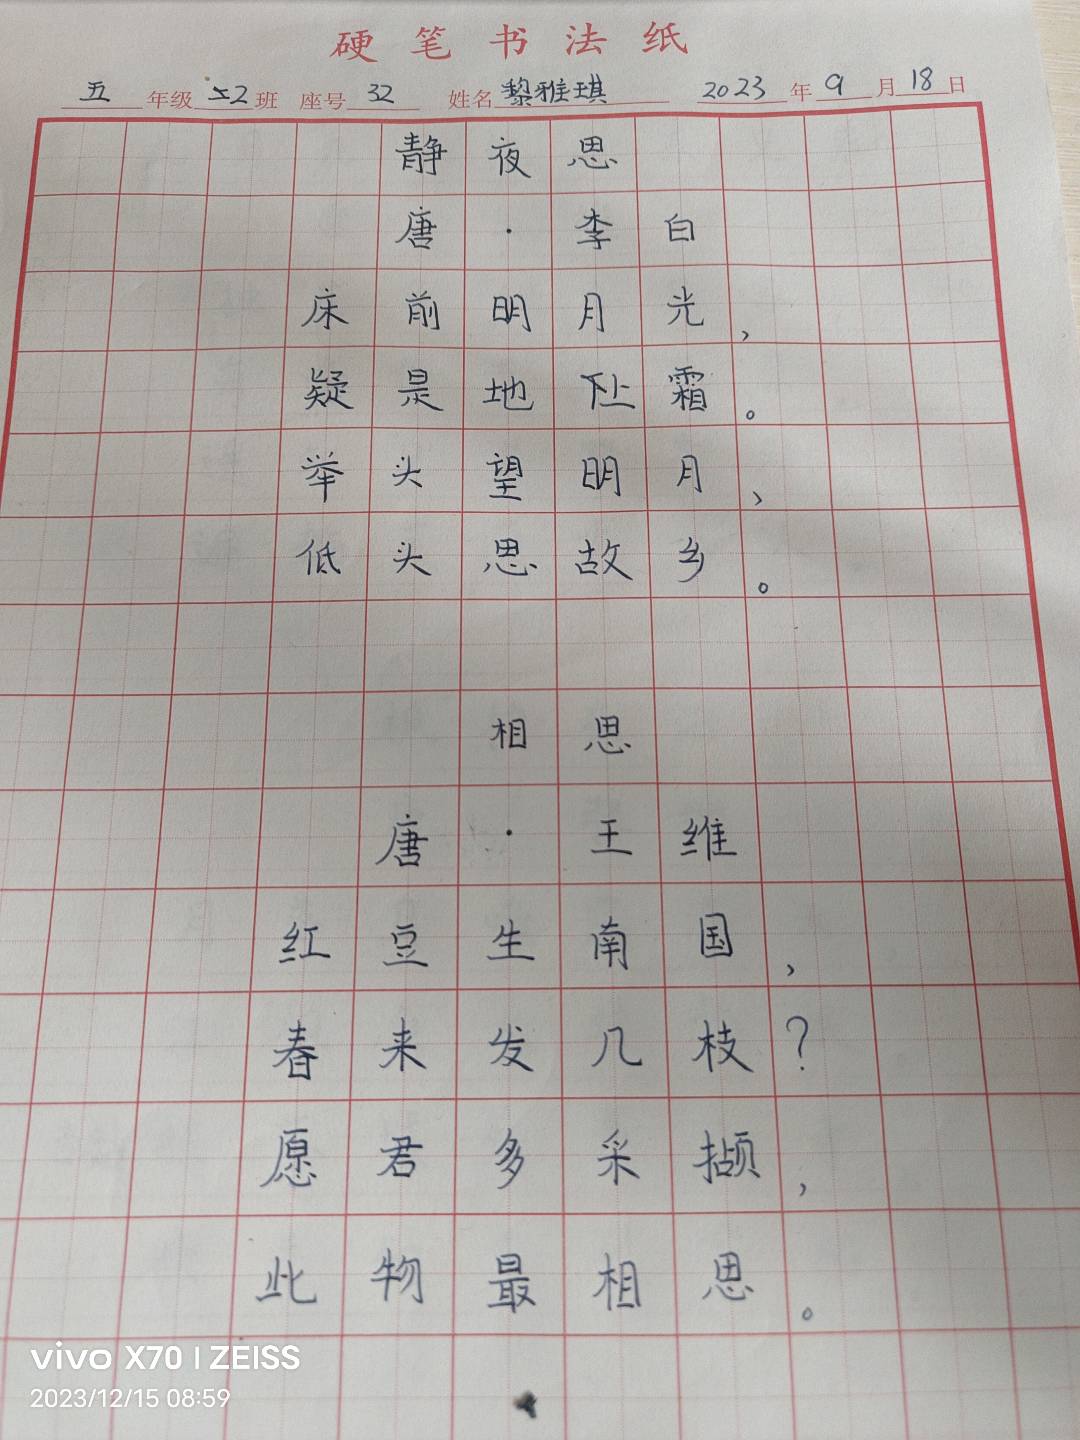 硬笔书法纸
五年级 2班 座号 32 姓名 黎雅琪 2023年9月18日
静夜思
唐·李白
床前明月光，
疑是地上霜。
举头望明月，
低头思故乡。
相思
唐·王维
红豆生南国，
春来发几枝？
愿君多采撷，
此物最相思。
vivo X70 | ZEISS
2023/12/15 08:59